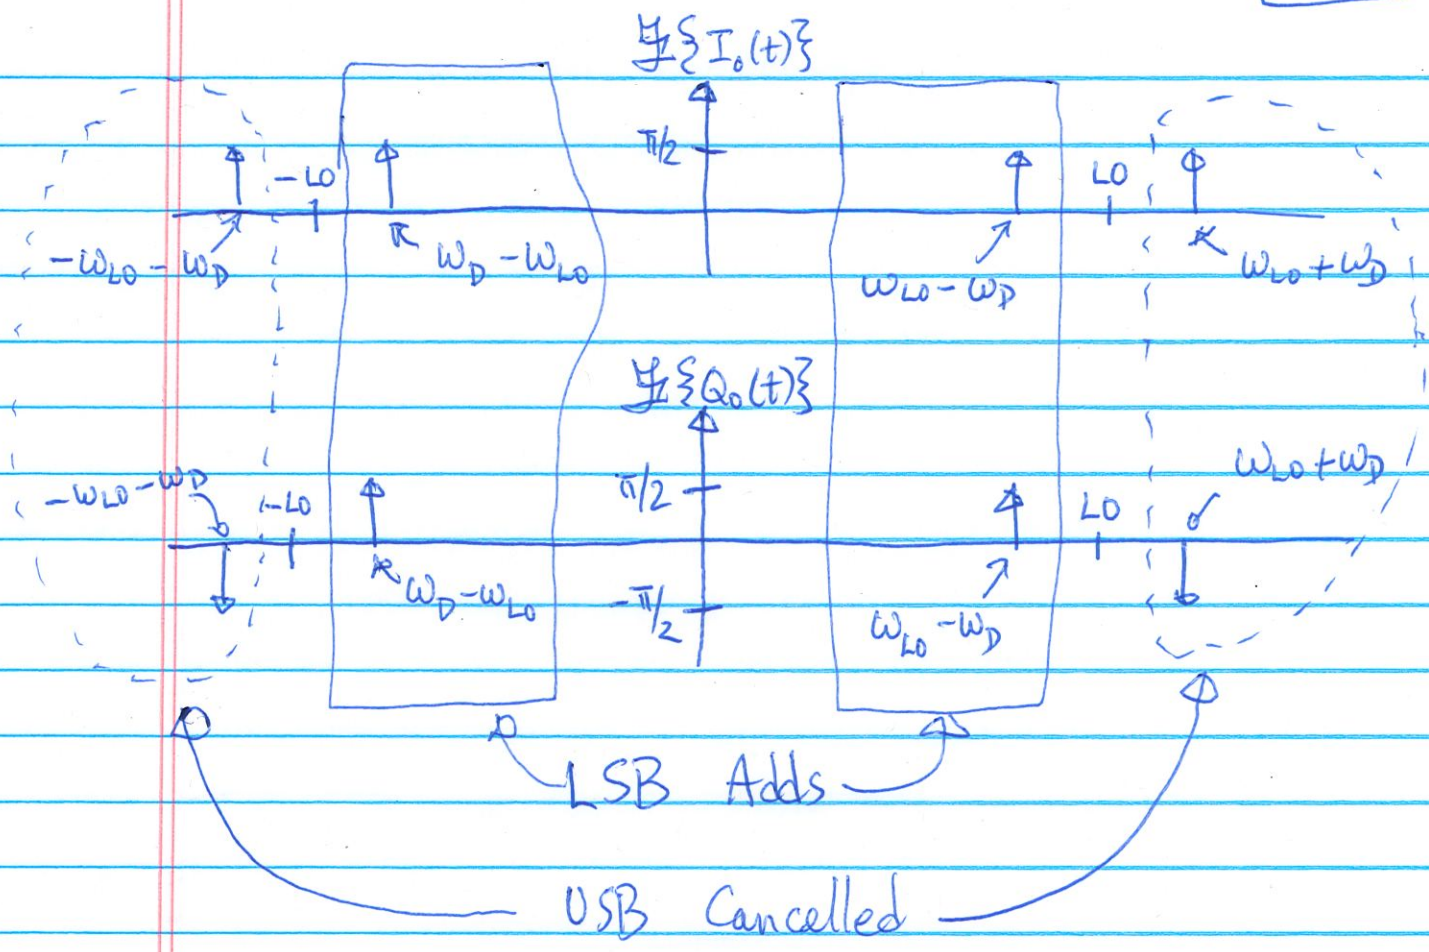 ℱ{I₀(t)}
π/2
-LO
LO
-ω_LO - ω_D
ω_D - ω_LO
ω_LO - ω_D
ω_LO + ω_D
ℱ{Q₀(t)}
-ω_LO - ω_D
-LO
π/2
LO
ω_LO + ω_D
ω_D - ω_LO
-π/2
ω_LO - ω_D
LSB Adds
USB Cancelled